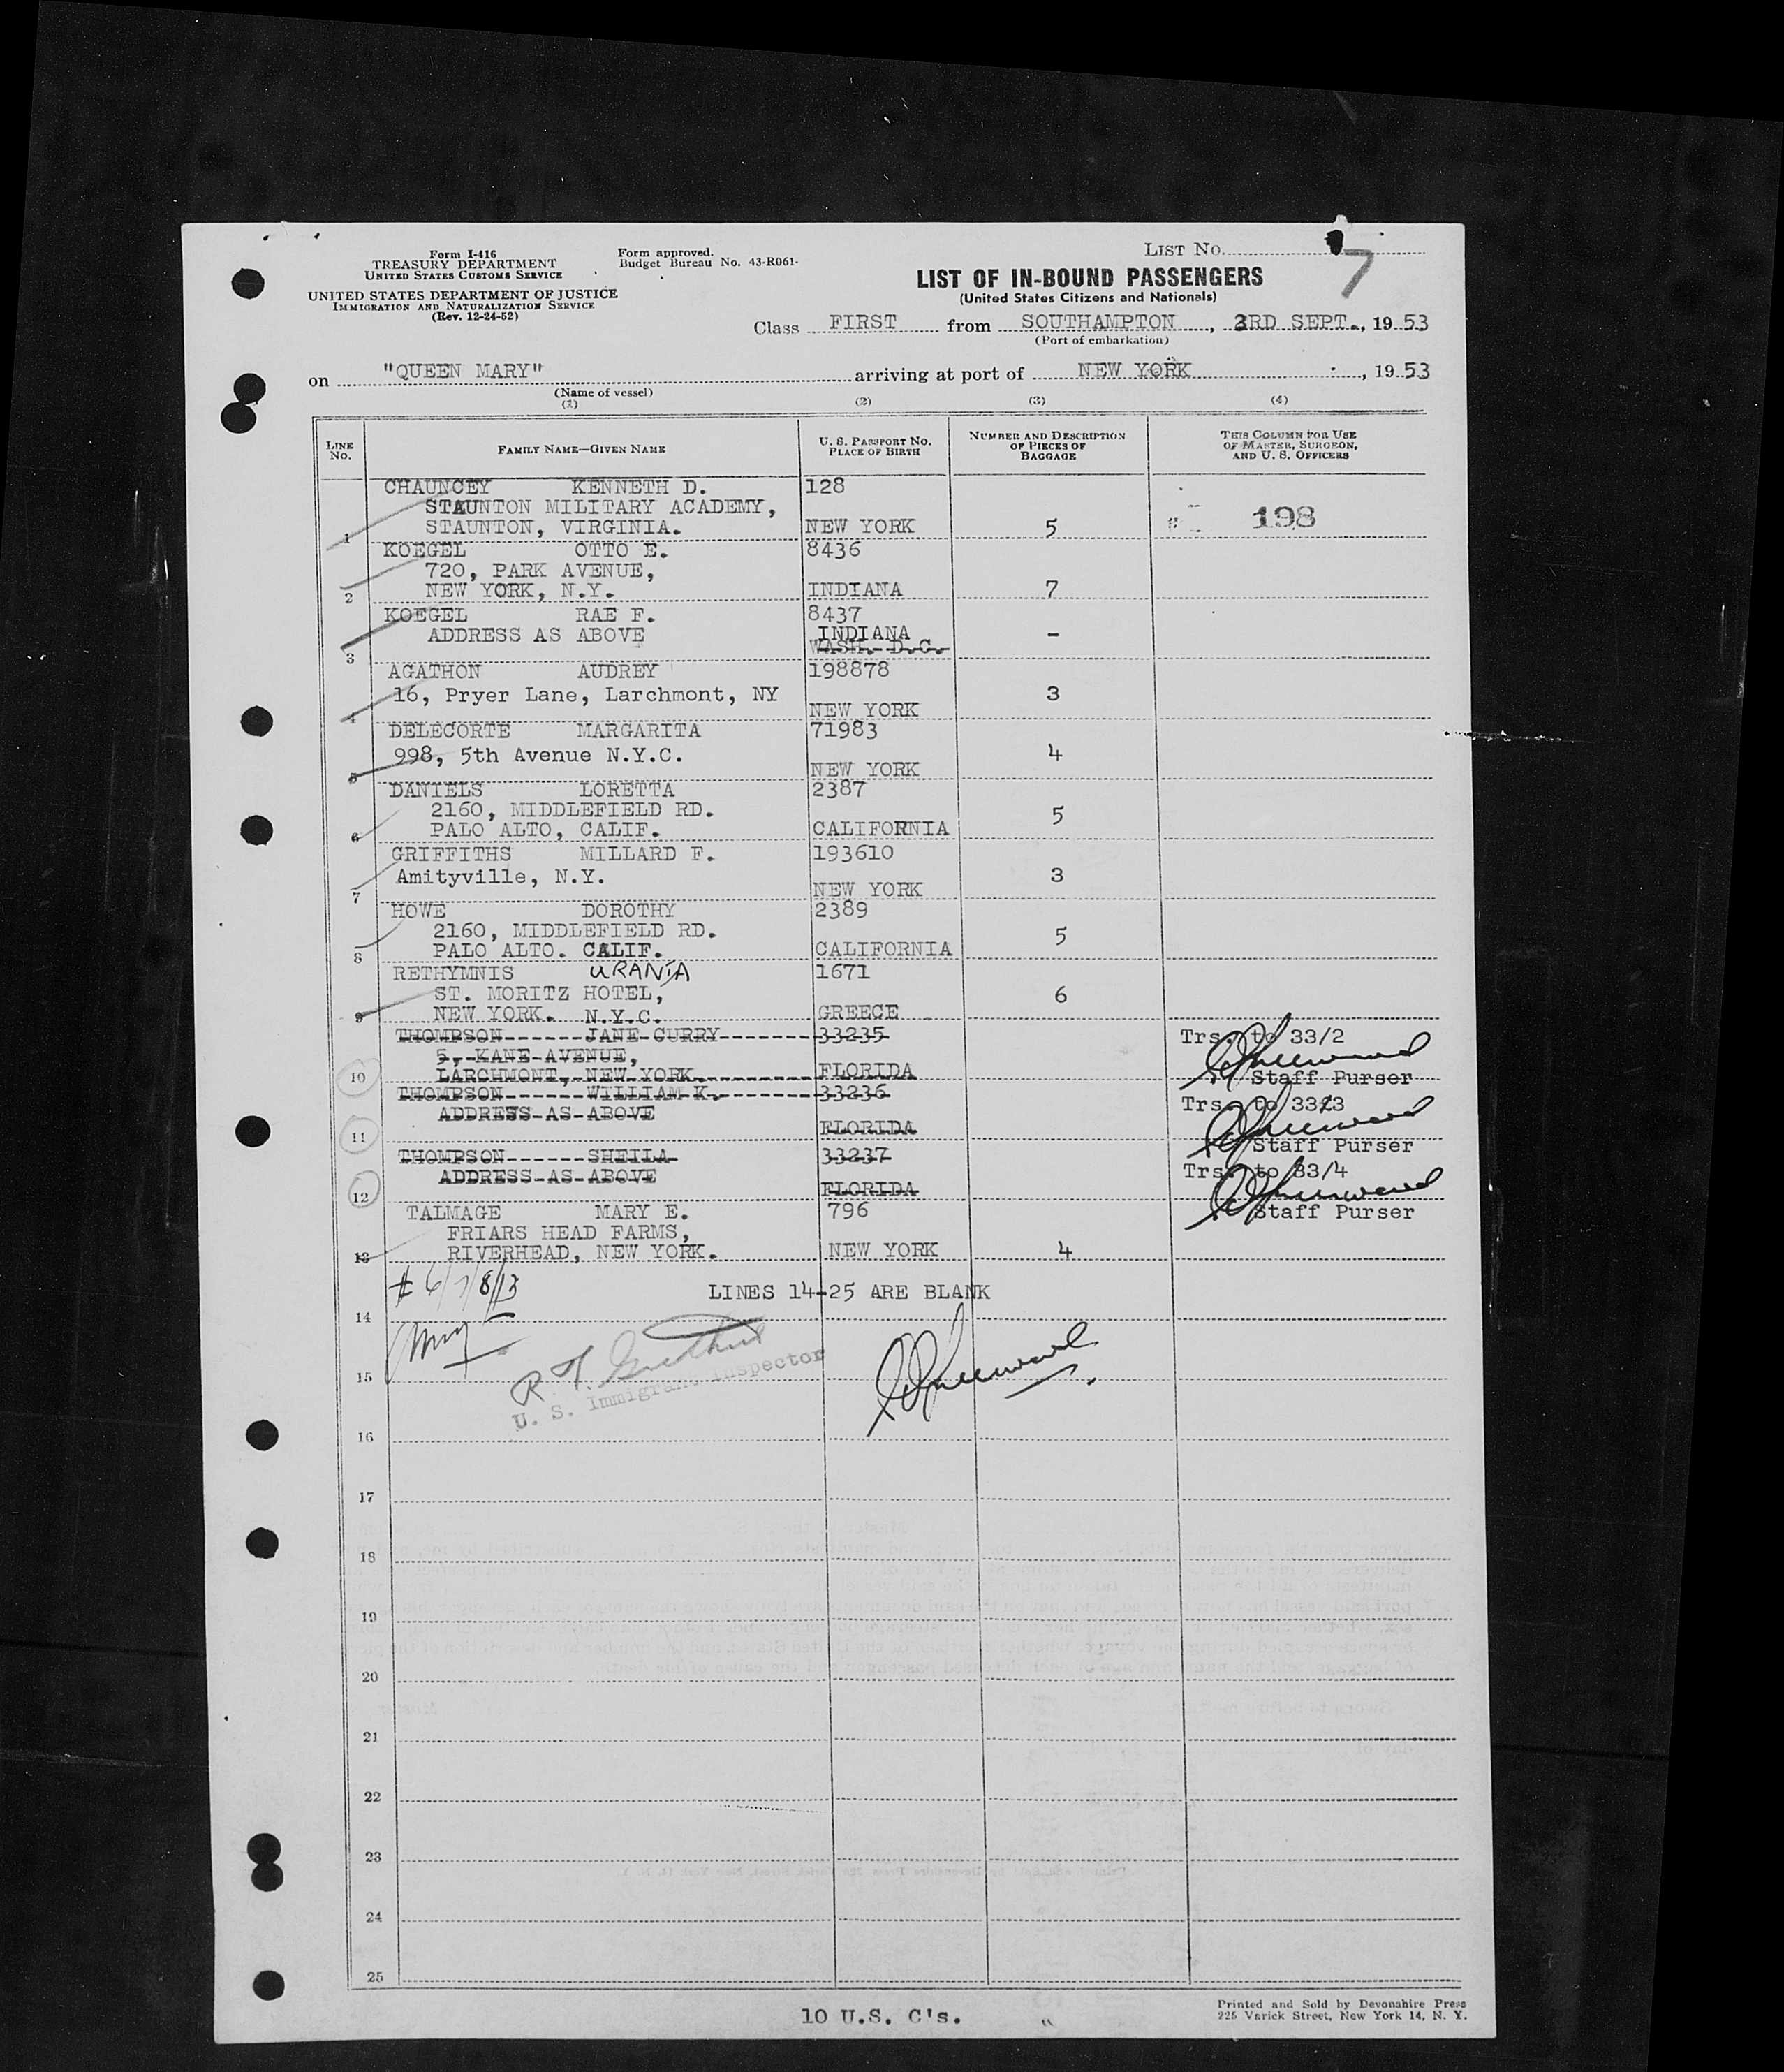 Form I-416
TREASURY DEPARTMENT
UNITED STATES CUSTOMS SERVICE
UNITED STATES DEPARTMENT OF JUSTICE
IMMIGRATION AND NATURALIZATION SERVICE
(Rev. 12-24-52)
Form approved.
Budget Bureau No. 43-R061-
LIST NO. 7
LIST OF IN-BOUND PASSENGERS
(United States Citizens and Nationals)
Class FIRST from SOUTHAMPTON, 3RD SEPT., 1953
(Port of embarkation)
on "QUEEN MARY" arriving at port of NEW YORK, 1953
(Name of vessel)
(1) (2) (3) (4)
LINE NO. FAMILY NAME—GIVEN NAME U. S. PASSPORT NO. PLACE OF BIRTH NUMBER AND DESCRIPTION OF PIECES OF BAGGAGE THIS COLUMN FOR USE OF MASTER, SURGEON, AND U. S. OFFICERS
CHAUNCEY KENNETH D. 128
STAUNTON MILITARY ACADEMY,
1 STAUNTON, VIRGINIA. NEW YORK 5 198
KOEGEL OTTO E. 8436
720, PARK AVENUE,
2 NEW YORK, N.Y. INDIANA 7
KOEGEL RAE F. 8437
ADDRESS AS ABOVE INDIANA -
3 WASH. D.C.
AGATHON AUDREY 198878
16, Pryer Lane, Larchmont, NY 3
4 NEW YORK
DELECORTE MARGARITA 71983
998, 5th Avenue N.Y.C. 4
5 NEW YORK
DANIELS LORETTA 2387
2160, MIDDLEFIELD RD. 5
6 PALO ALTO, CALIF. CALIFORNIA
GRIFFITHS MILLARD F. 193610
Amityville, N.Y. 3
7 NEW YORK
HOWE DOROTHY 2389
2160, MIDDLEFIELD RD. 5
8 PALO ALTO. CALIF. CALIFORNIA
RETHYMNIS URANIA 1671
ST. MORITZ HOTEL, 6
9 NEW YORK. N.Y.C. GREECE
THOMPSON JANE CURRY 33235 Trs. to 33/2
5, KANE AVENUE,
10 LARCHMONT, NEW YORK. FLORIDA Staff Purser
THOMPSON WILLIAM K. 33236 Trs. to 33/3
ADDRESS AS ABOVE
11 FLORIDA Staff Purser
THOMPSON SHEILA 33237 Trs. to 33/4
ADDRESS AS ABOVE
12 FLORIDA Staff Purser
TALMAGE MARY E. 796
FRIARS HEAD FARMS,
13 RIVERHEAD, NEW YORK. NEW YORK 4
# 6/7/8/13
LINES 14-25 ARE BLANK
14
15
U. S. Immigrant Inspector
16
17
18
19
20
21
22
23
24
25
10 U.S. C's.
Printed and Sold by Devonshire Press
225 Varick Street, New York 14, N. Y.